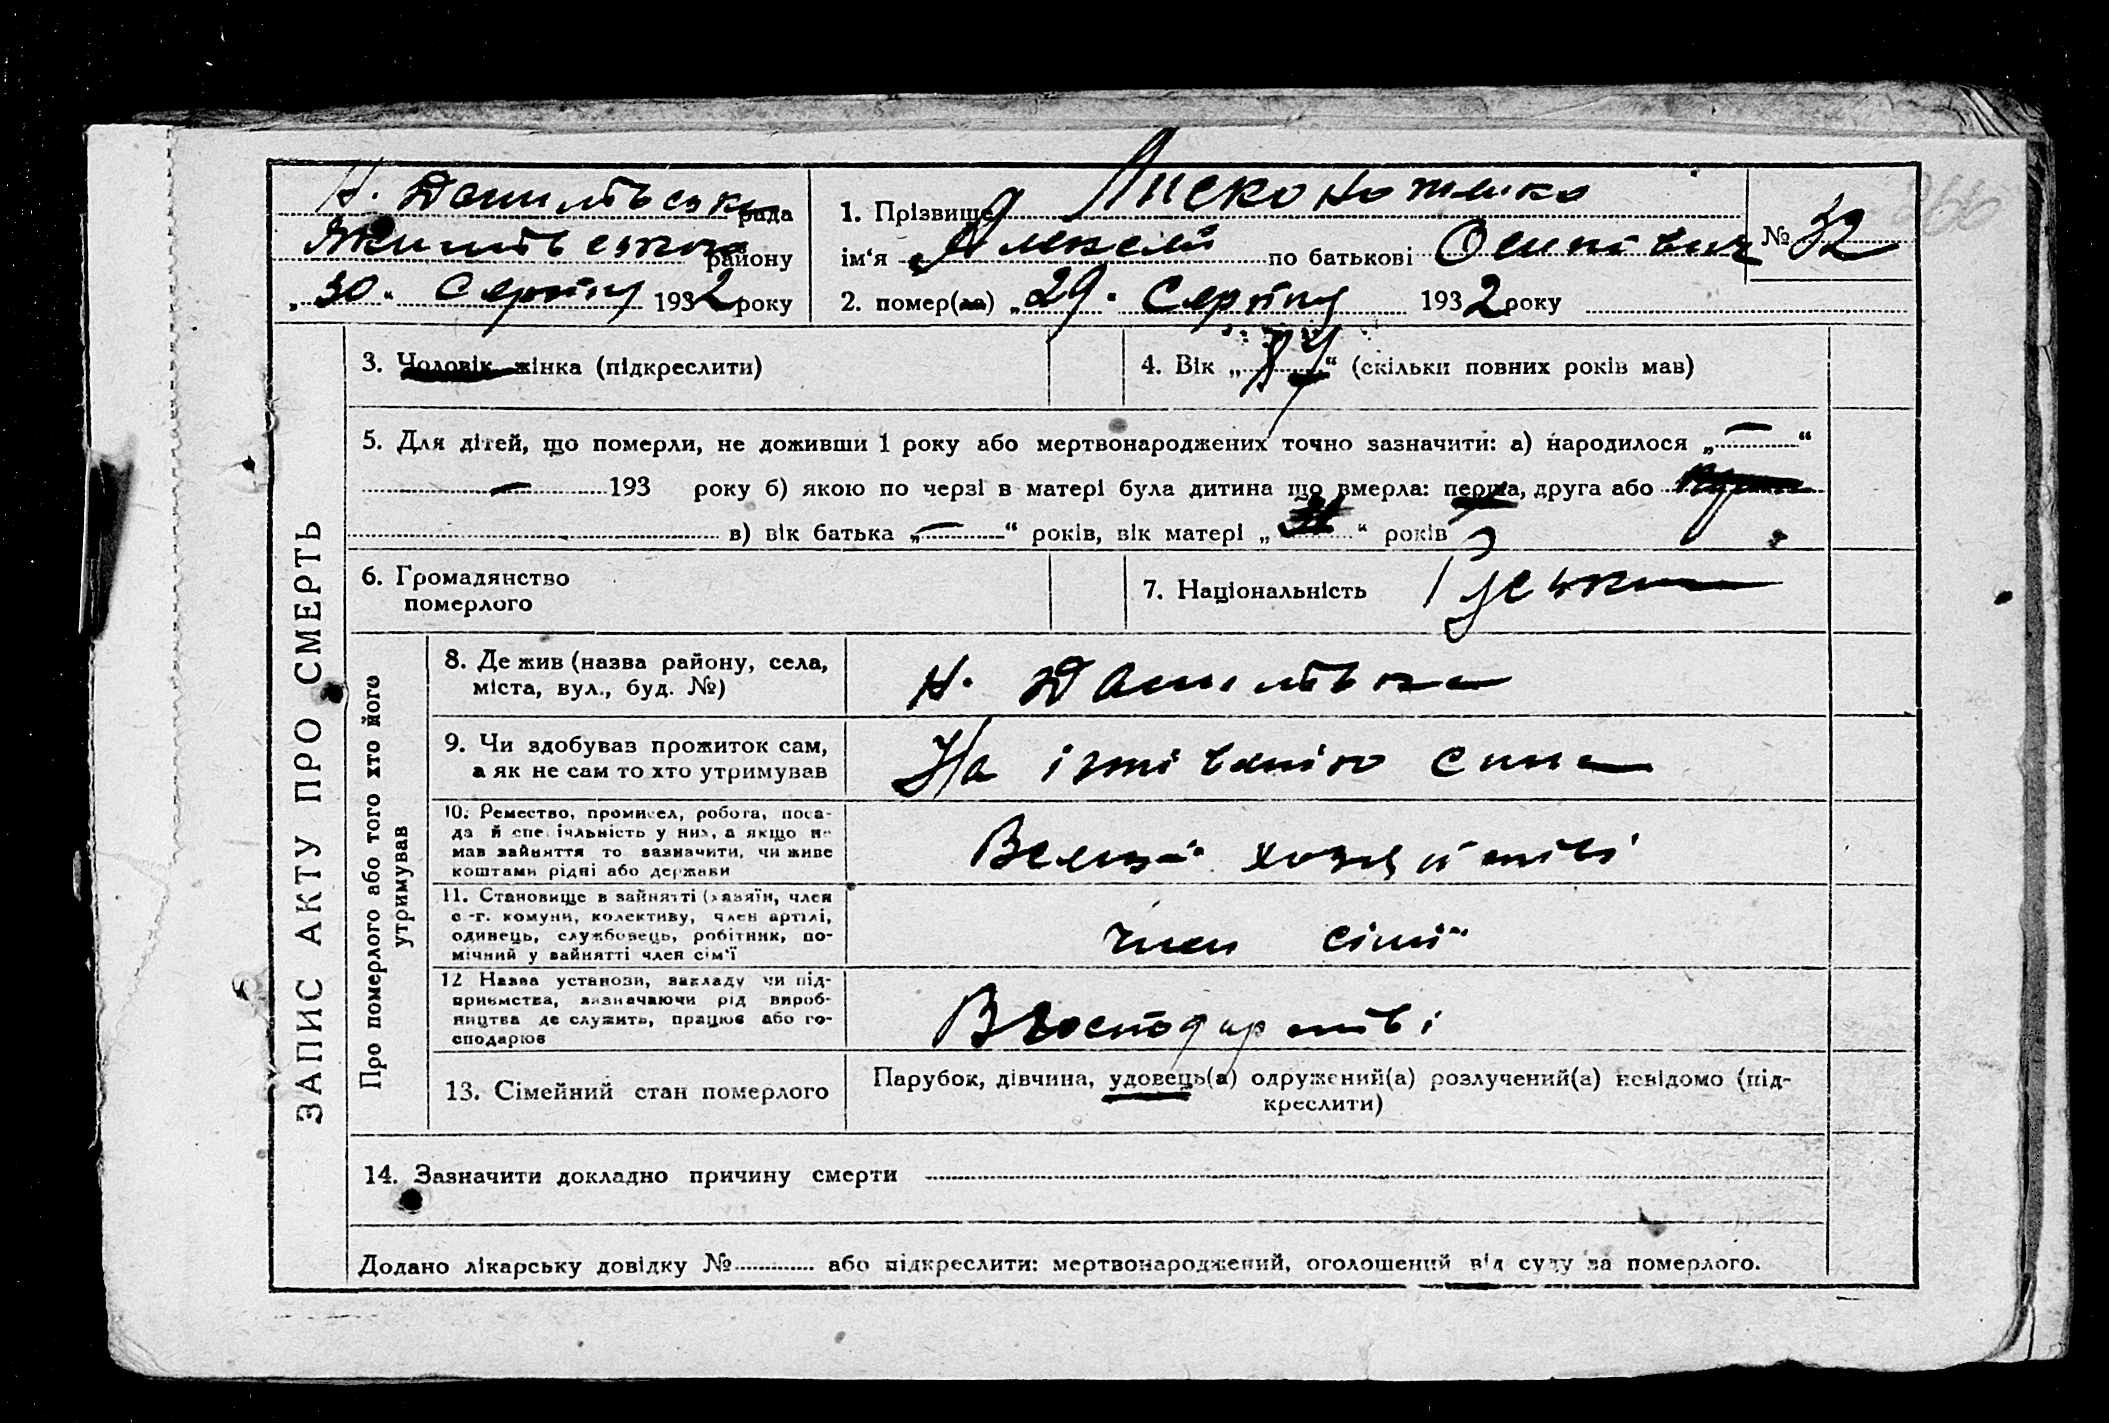 Н. Данилівська рада
Якимівського району
„30“ Серпня 1932 року
1. Прізвище
ім'я Олексій по батькові Осипович
2. помер(ла) „29. Серпня 1932 року
№ 32
266
3. Чоловік, жінка (підкреслити)
4. Вік „ “ (скільки повних років мав)
5. Для дітей, що померли, не доживши 1 року або мертвонароджених точно зазначити: а) народилося „—“
— 193 року б) якою по черзі в матері була дитина що вмерла: перша, друга або
в) вік батька „—“ років, вік матері „ “ років
6. Громадянство
померлого
7. Національність
ЗАПИС АКТУ ПРО СМЕРТЬ
Про померлого або того хто його
утримував
8. Де жив (назва району, села,
міста, вул., буд. №)
Н. Данилівка
9. Чи здобував прожиток сам,
а як не сам то хто утримував
На сина
10. Ремество, промисел, робота, поса-
да й спеціяльність у них, а якщо не
мав зайняття то зазначити, чи живе
коштами рідні або держави
В
11. Становище в зайнятті (хазяїн, член
с.-г. комуни, колективу, член артілі,
одинець, службовець, робітник, по-
мічний у зайнятті член сім'ї
член сімії
12 Назва установи, закладу чи під-
приємства, зазначаючи рід вироб-
ництва де служить, працює або го-
сподарює
В господарстві
13. Сімейний стан померлого
Парубок, дівчина, удовець(а) одружений(а) розлучений(а) невідомо (під-
креслити)
14. Зазначити докладно причину смерти
Додано лікарську довідку № або підкреслити: мертвонароджений, оголошений від суду за померлого.